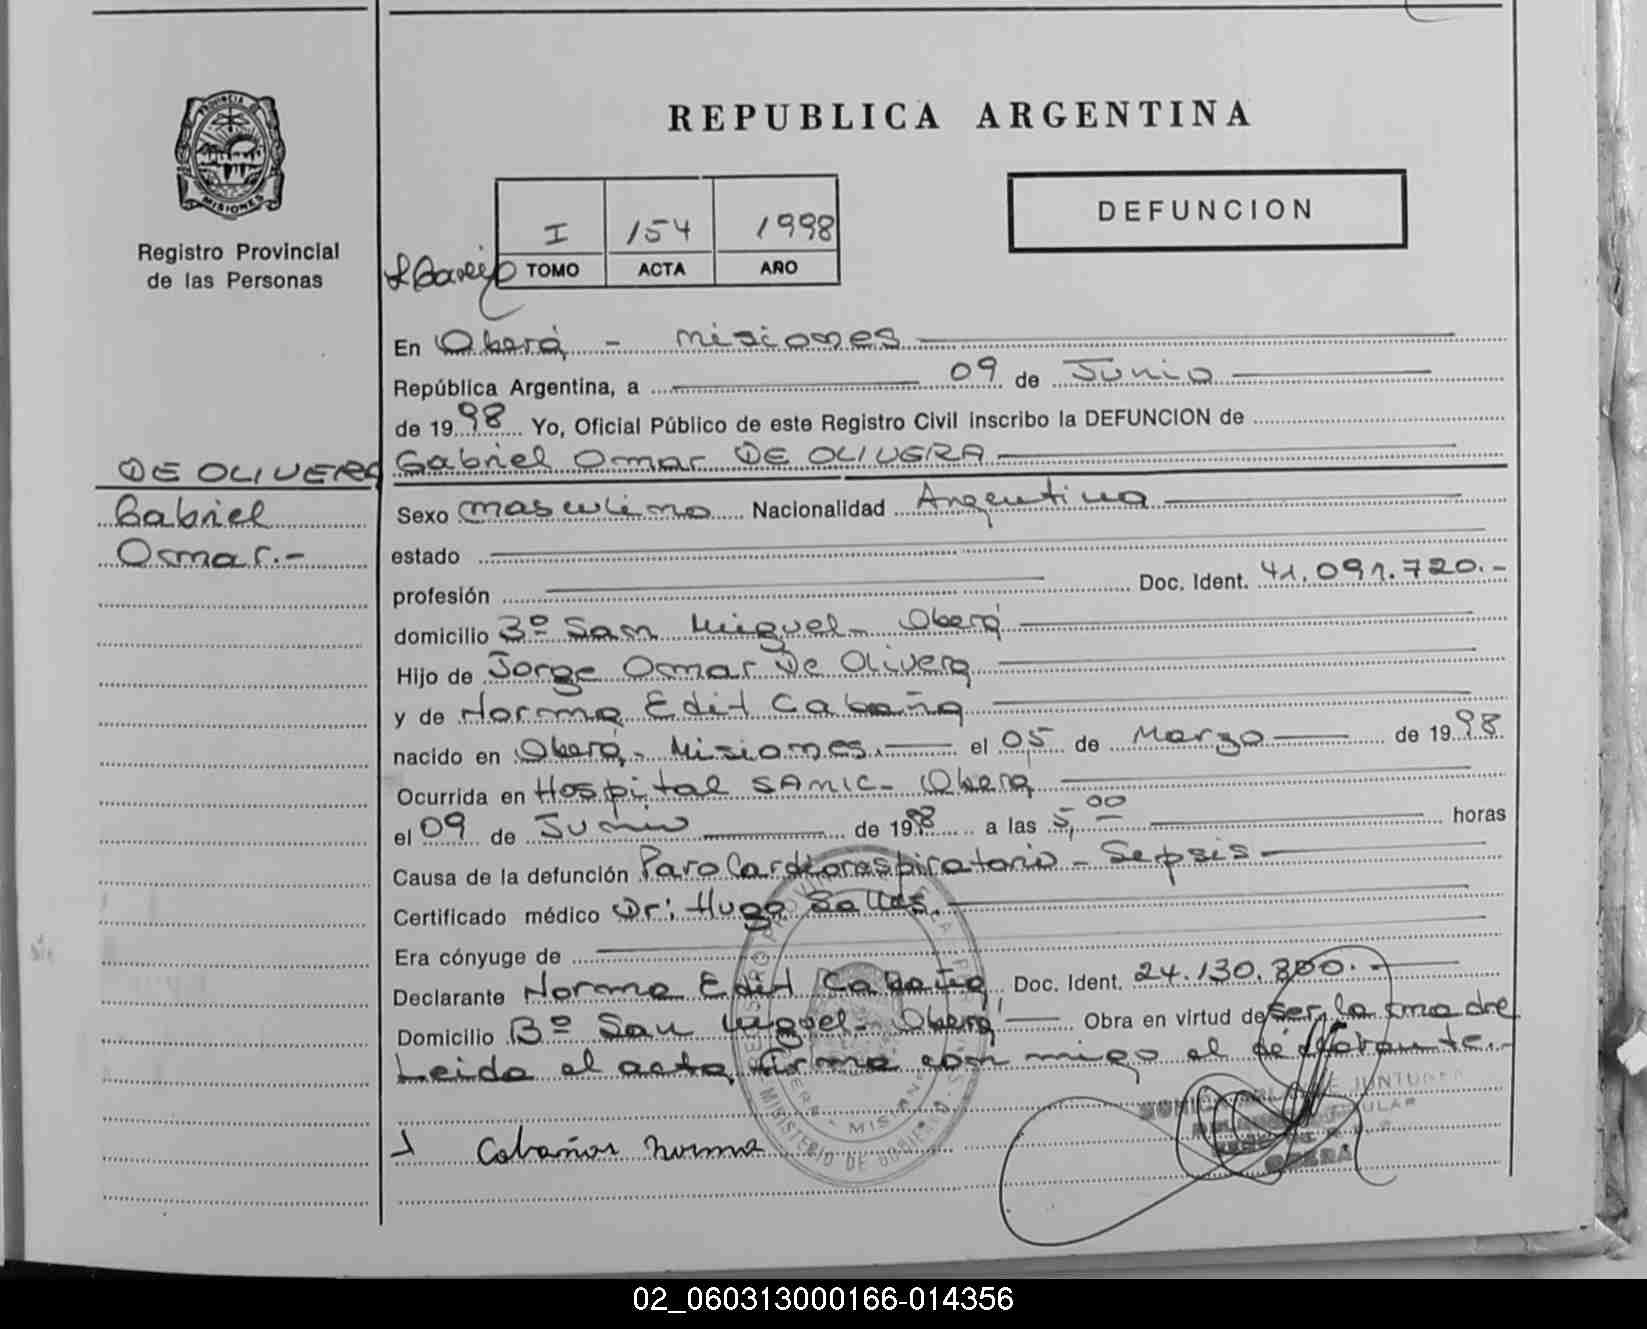 REPUBLICA ARGENTINA
PROVINCIA DE
MISIONES
Registro Provincial
de las Personas
I 154 1998
TOMO ACTA AÑO
DEFUNCION
En Oberá - Misiones
República Argentina, a 09 de Junio
de 1998 Yo, Oficial Público de este Registro Civil inscribo la DEFUNCION de
Gabriel Omar DE OLIVERA
DE OLIVERA
Gabriel
Osmar.-
Sexo masculino Nacionalidad Argentina
estado
profesión Doc. Ident. 41.091.720.-
domicilio Bº San Miguel - Oberá
Hijo de Jorge Osmar De Olivera
y de Norma Edit Cabaña
nacido en Oberá - Misiones. el 05 de Marzo de 1998
Ocurrida en Hospital SAMIC - Oberá
el 09 de Junio de 1998 a las 5,00 horas
Causa de la defunción Paro Cardiorespiratorio - Sepsis
Certificado médico Dr: Hugo
Era cónyuge de
Declarante Norma Edit Cabaña Doc. Ident. 24.130.300.-
Domicilio Bº San Miguel - Oberá Obra en virtud de ser la madre
Leida el acta firma con migo el declarante.-
Cabañas Norma
MINISTERIO DE GOBIERNO
OBERA
02_060313000166-014356